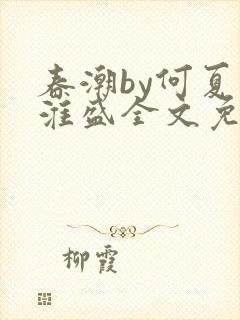 春潮by何夏
淮盛全文免
柳霞